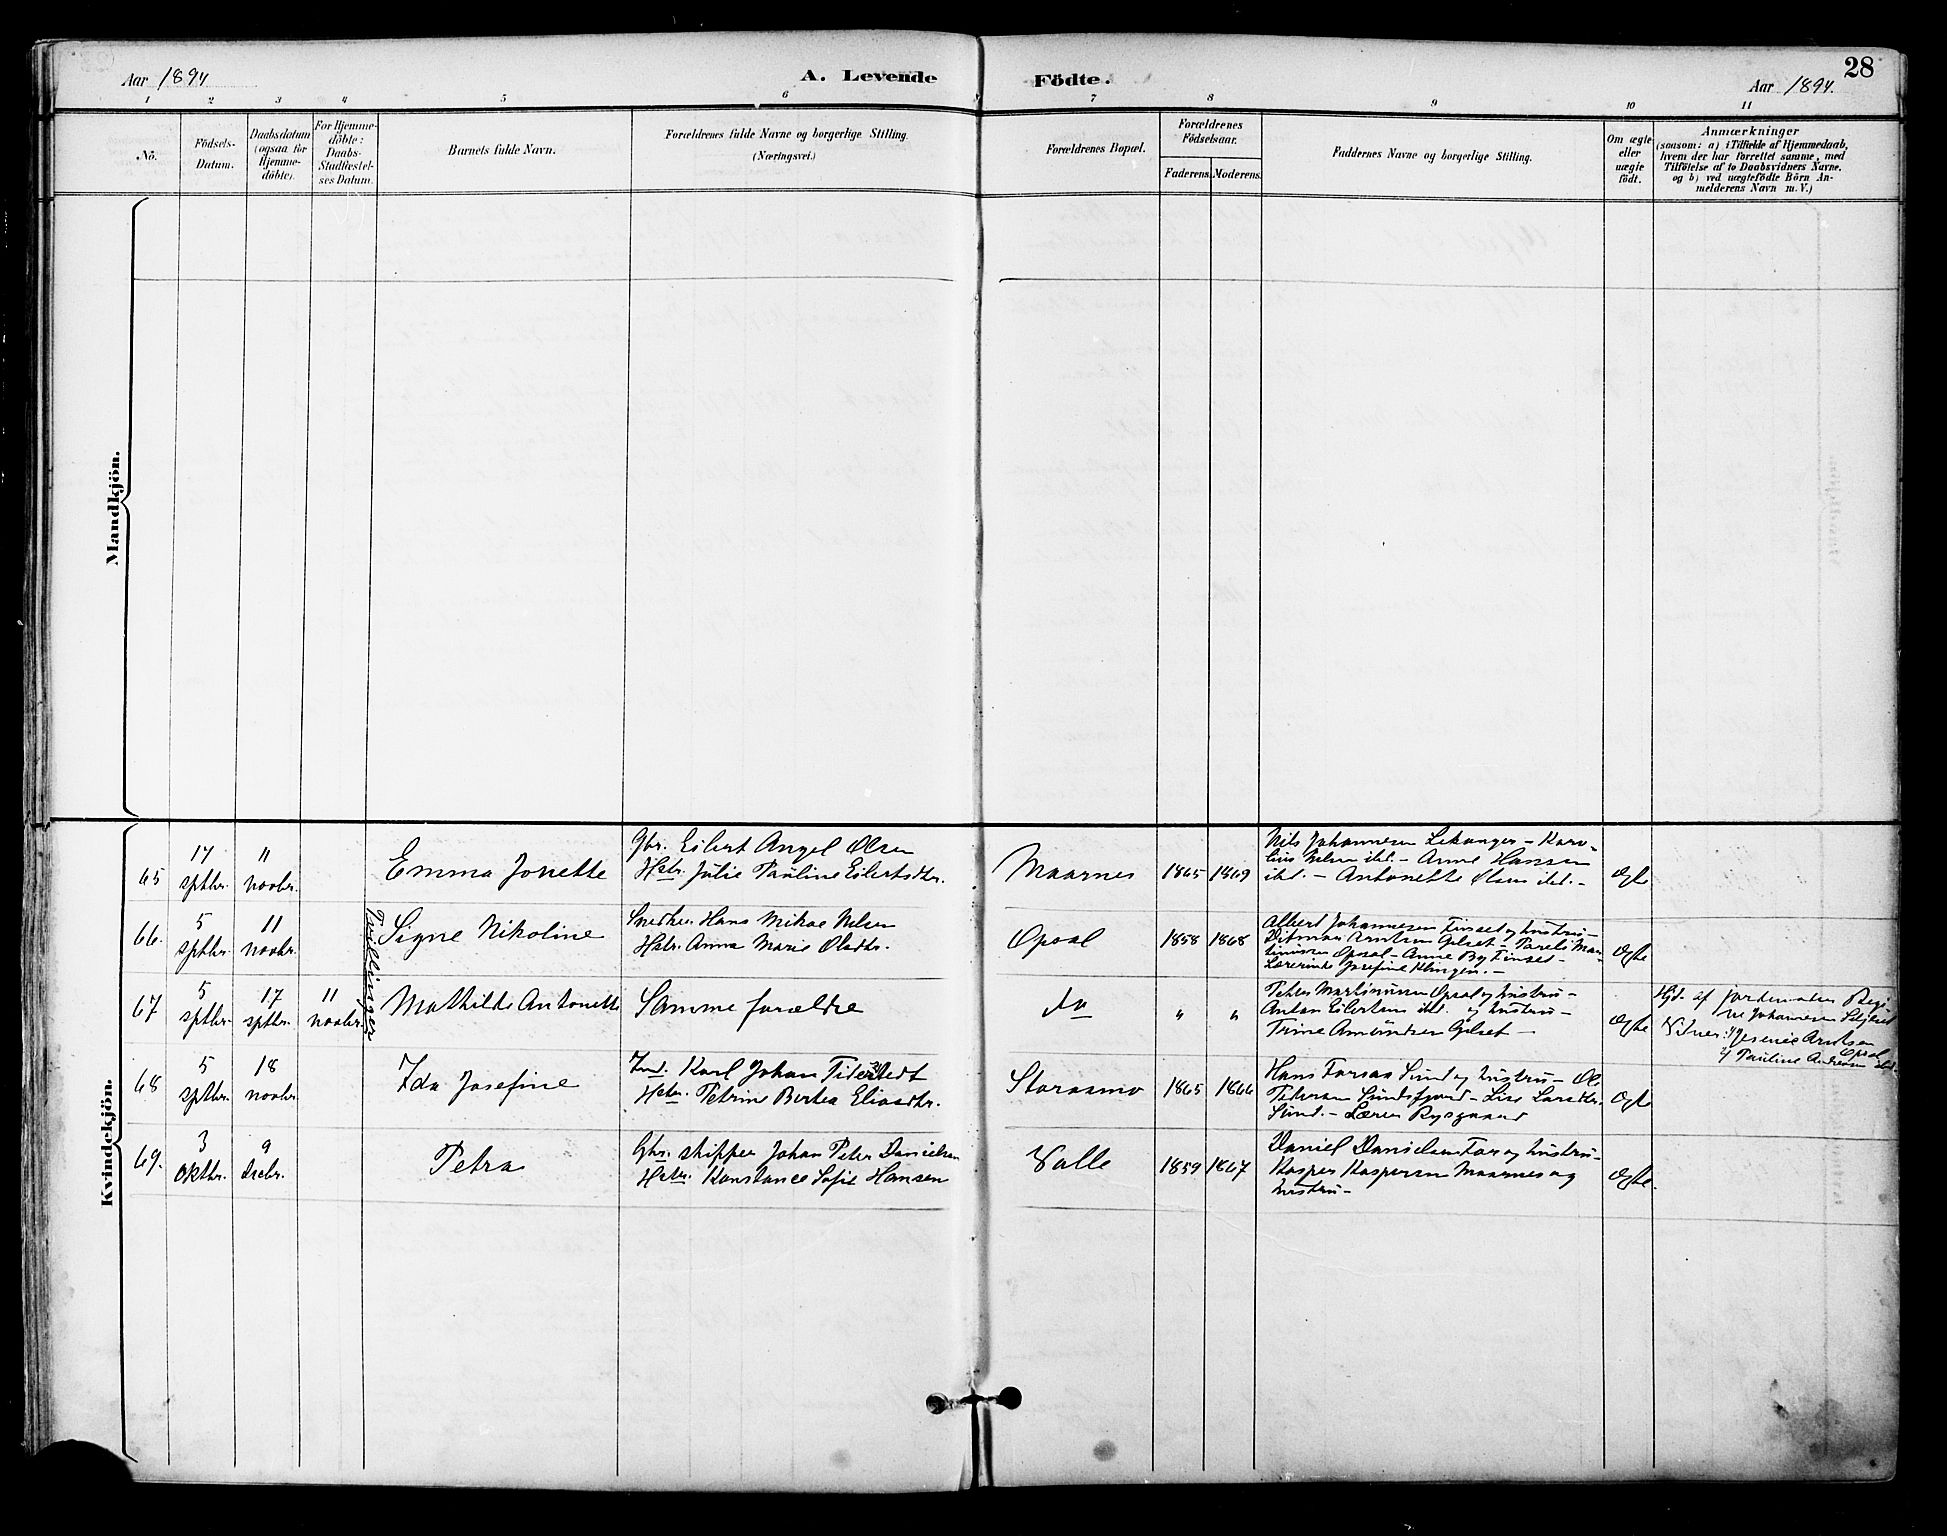 28
Aar 1894
A. Levende
Födte.
Aar 1894.
1 2 3 4 5 6 7 8 9 10 11
Nö.
Födsels-
Datum.
Daabsdatum
(ogsaa for
Hjemme-
döbte).
For Hjemme-
döbte:
Daabs-
Stadfæstel-
ses Datum.
Barnets fulde Navn.
Forældrenes fulde Navne og borgerlige Stilling.
(Næringsvei.)
Forældrenes Bopæl.
Forældrenes
Födselsaar.
Faderens. Moderens.
Faddernes Navne og borgerlige Stilling.
Om ægte
eller
uægte
födt.
Anmærkninger
(saasom: a) i Tilfælde af Hjemmedaab,
hvem der har forrettet samme, med
Tilföielse af to Daabsvidners Navne,
og b) ved uægtefödte Börn An-
melderens Navn m. V.)
Mandkjön.
Kvindekjön.
65
17
sptbr.
11
novbr.
Emma Jonette
Gbr. Eilert Angel Olsen
Hstr. Julie Pauline Eilertsdtr.
Maarnes
1865
1869
Nils Johannesen Lekanger - Karo-
lius Nelsen ibd. - Anne Hansen
ibd. - Antonette Olsen ibd. -
Ægte
66.
5
sptbr.
11
novbr.
Tvillinger
Signe Nikoline
Snedker Hans Mikal Nilsen
Hstr. Anna Marie Olsdtr.
Opsal
1858
1868
Albert Johannesen Finset og hustru -
Ditmar Arntsen Gilset - Pareli Mar-
tinusen Opsal - Anne By Finset -
Lærerinde Josefine Klingen. -
Ægte
67
5
sptbr.
17
sptbr.
11
novbr.
Mathilde Antonette
Samme forældre
do
"
"
Peter Martinusen Opsal og hustru -
Anton Eilertsen ibd. og hustru -
Trine Amundsen Gilset -
Ægte
Hjd. af jordemoder Regi-
ne Johannesen Seljeset
Vidner: 1) Jesenie Arntsen
Opsal
2) Pauline Andreasen ibd.
68
5
sptbr.
18
novbr.
Ida Josefine
Ind. Karl Johan Tiderstedt
Hstr. Petrine Bertea Eliasdtr.
Storasmo
1865
1866
Hans Forsaa Sund og hustru - Ole
Pedersen Sundsfjord - Lise Larsdtr.
Sund. - Lærer Rysgaard
Ægte
69.
3
oktbr.
9
decbr.
Petra
Gbr. skipper Johan Peter Danielsen
Hstr. Konstance Sofie Hansen
Valle
1859
1867
Daniel Danielsen For og hustru -
Kasper Kaspersen Maarnes og
hustru -
Ægte.